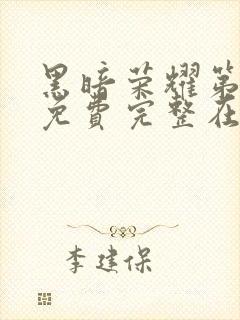 黑暗荣耀第
免费完整在
李建保